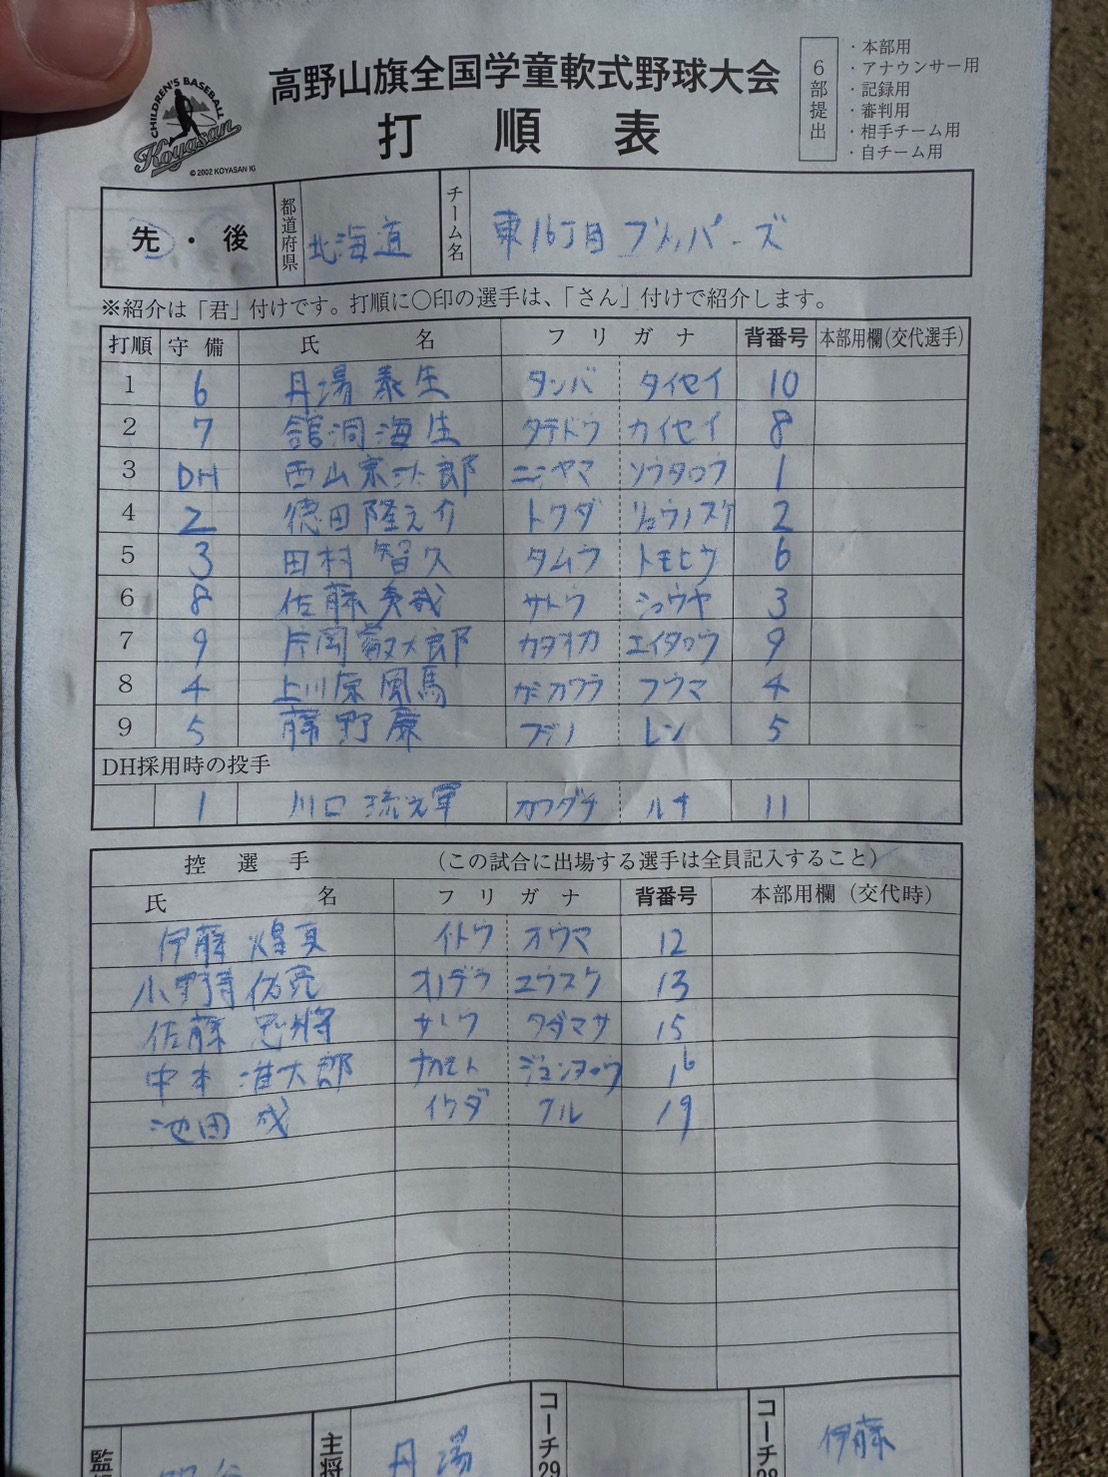 CHILDREN'S BASEBALL
Koyasan
© 2002 KOYASAN IG
高野山旗全国学童軟式野球大会
打順表
6部提出
・本部用
・アナウンサー用
・記録用
・審判用
・相手チーム用
・自チーム用
先・後 都道府県 北海道 チーム名 東16丁目フリッパーズ
※紹介は「君」付けです。打順に〇印の選手は、「さん」付けで紹介します。
打順 守備 氏名 フリガナ 背番号 本部用欄(交代選手)
1 6 丹場泰生 タンバ タイセイ 10
2 7 舘洞海生 タテドウ カイセイ 8
3 DH 西山宗汰郎 ニシヤマ ソウタロウ 1
4 2 徳田隆之介 トクダ リュウノスケ 2
5 3 田村智久 タムラ トモヒサ 6
6 8 佐藤奏哉 サトウ ショウヤ 3
7 9 片岡叡太郎 カタオカ エイタロウ 9
8 4 上川原風馬 カミカワラ フウマ 4
9 5 藤野廉 フジノ レン 5
DH採用時の投手
1 川口琉光軍 カワグチ ルナ 11
控選手 (この試合に出場する選手は全員記入すること)
氏名 フリガナ 背番号 本部用欄(交代時)
伊藤煌真 イトウ オウマ 12
小野寺佑亮 オノデラ ユウスケ 13
佐藤忠将 サトウ タダマサ 15
中本準太郎 ナカモト ジュンタロウ 16
池田成 イケダ ナル 19
主将 丹場
コーチ29
コーチ28 伊藤